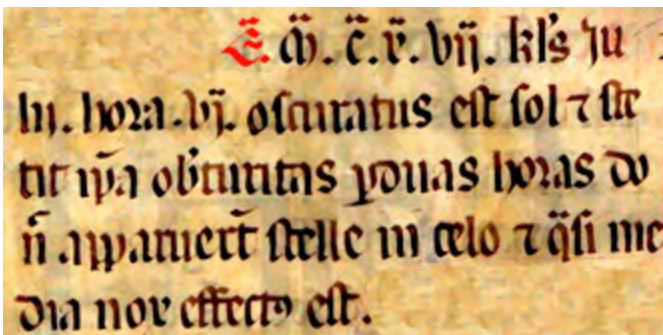 Ē. M̄. C̄. X̄. vij. kl's Ju
lij. hora .vj. oscuratus est sol ⁊ ste
tit ip̄a obscuritas p duas horas do
n̄ apparuert̄ stelle in celo ⁊ q̄si me
dia nox effect9 est.